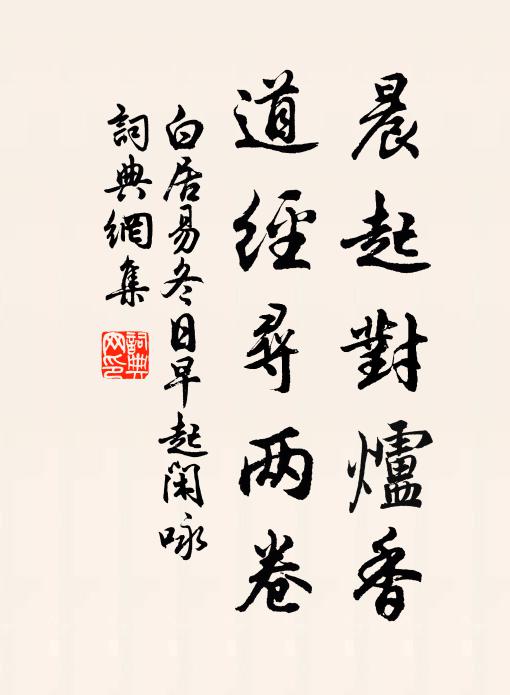 晨起對爐香
道經尋兩卷
白居易冬日早起閑咏
詞典網集
詞典網印